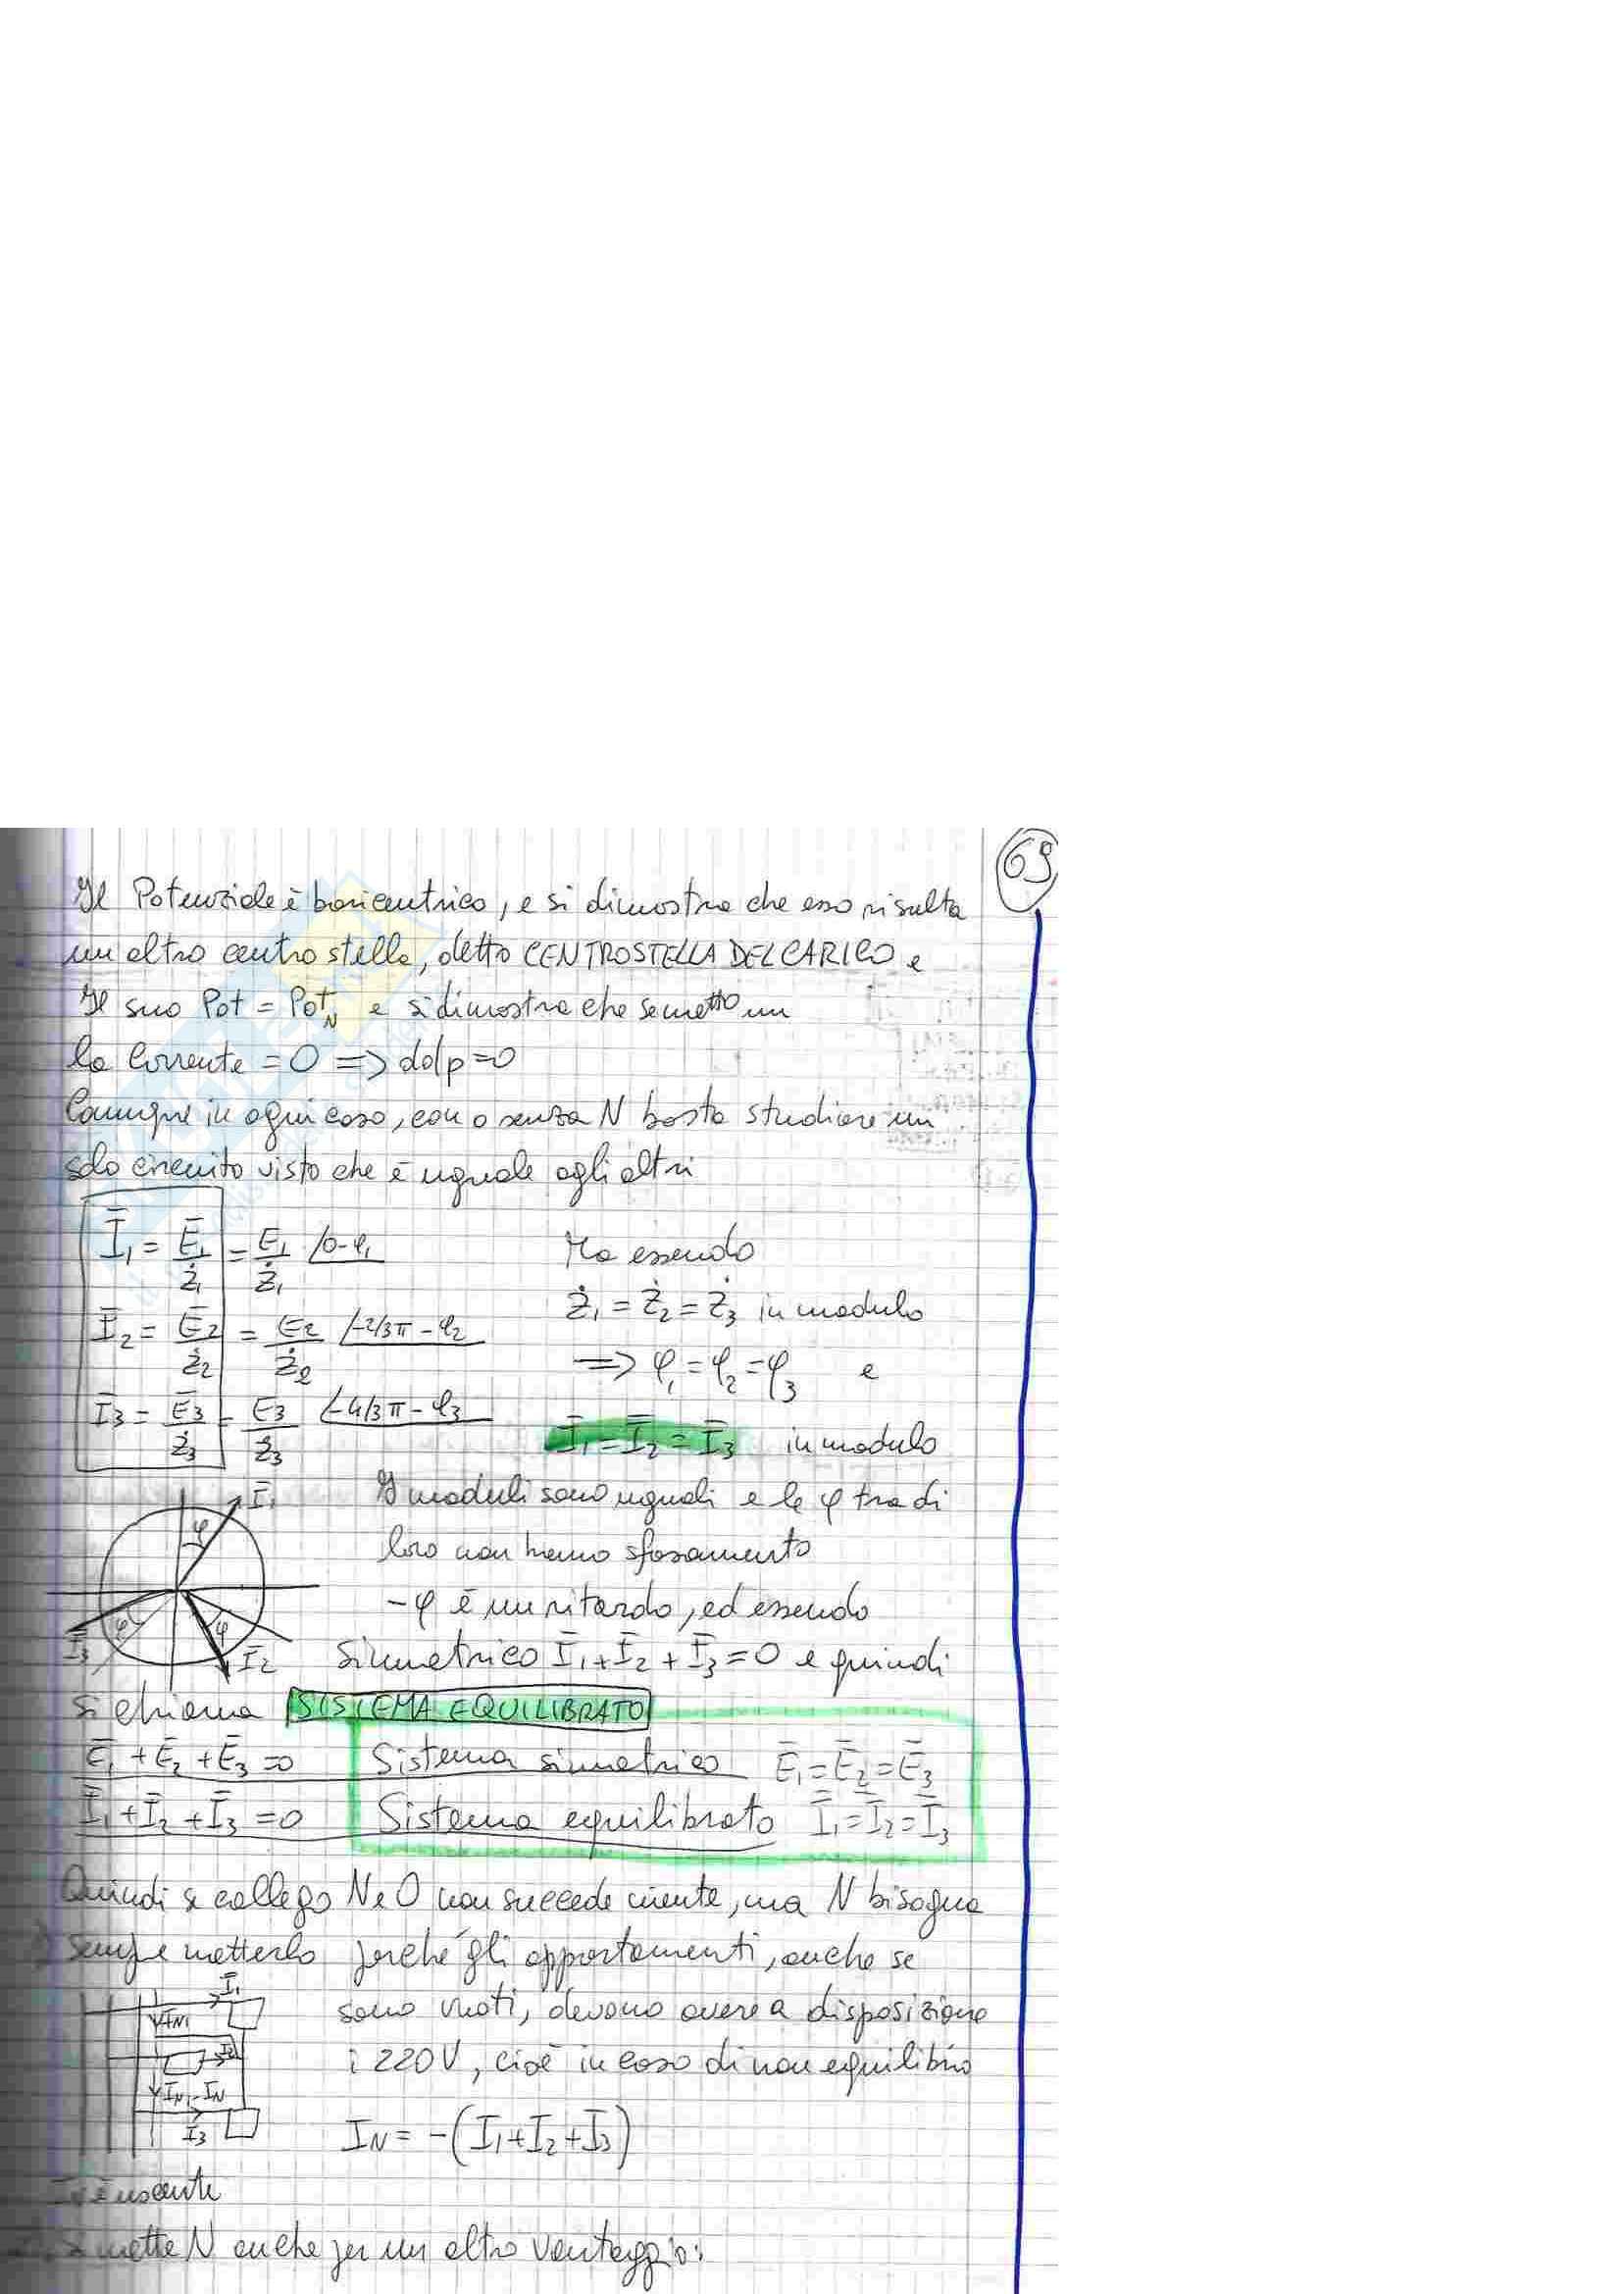 69
Il Potenziale è baricentrico, e si dimostra che esso risulta
un altro centro stella, detto CENTROSTELLA DEL CARICO e
Il suo Pot = Pot_N e si dimostra che se metto un
la corrente = 0 => ddp=0
Comunque in ogni caso, con o senza N basta studiare un
solo circuito visto che è uguale agli altri
Ī₁ = Ē₁/Ż₁ = E₁/Ż₁ /0-φ₁
Ma essendo
Ż₁ = Ż₂ = Ż₃ in modulo
Ī₂ = Ē₂/Ż₂ = E₂/Ż₂ /-2/3π - φ₂
=> φ₁ = φ₂ = φ₃ e
Ī₃ = Ē₃/Ż₃ = E₃/Ż₃ /-4/3π - φ₃
Ī₁ = Ī₂ = Ī₃ in modulo
Ī₁
φ
φ
φ
Ī₃
Ī₂
I moduli sono uguali e le φ tra di
loro non hanno sfasamento
-φ è un ritardo, ed essendo
simmetrico Ī₁+Ī₂+Ī₃=0 e quindi
si chiama SISTEMA EQUILIBRATO
Ē₁+Ē₂+Ē₃=0 Sistema simmetrico Ē₁=Ē₂=Ē₃
Ī₁+Ī₂+Ī₃=0 Sistema equilibrato Ī₁=Ī₂=Ī₃
Quindi se collego N e O non succede niente, ma N bisogna
sempre metterlo perché gli appartamenti, anche se
sono vuoti, devono avere a disposizione
i 220V, cioè in caso di non equilibrio
Ī₁
I₃
I_N = -(Ī₁+Ī₂+Ī₃)
è uscente
si mette N anche per un altro vantaggio: